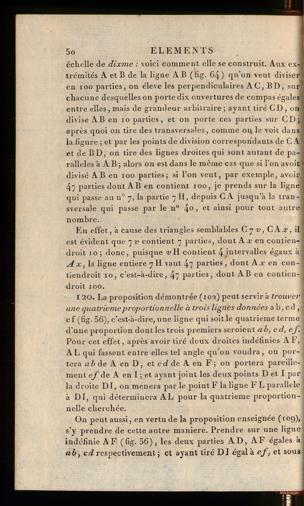 50 ELEMENTS
échelle de dixme : voici comment elle se construit. Aux ex-
trémités A et B de la ligne A B (fig. 64) qu'on veut diviser
en 100 parties, on éleve les perpendiculaires A C, B D, sur
chacune desquelles on porte dix ouvertures de compas égales
entre elles, mais de grandeur arbitraire ; ayant tiré C D, on
divise A B en 10 parties, et on porte ces parties sur C D ;
après quoi on tire des transversales, comme on le voit dans
la figure ; et par les points de division correspondants de C A
et de B D, on tire des lignes droites qui sont autant de pa-
ralleles à A B ; alors on est dans le même cas que si l'on avoit
divisé A B en 100 parties ; si l'on veut, par exemple, avoir
47 parties dont A B en contient 100, je prends sur la ligne
qui passe au n° 7, la partie 7 H, depuis C A jusqu'à la tran-
sversale qui passe par le n° 40, et ainsi pour tout autre
nombre.
En effet, à cause des triangles semblables C 7 v, C A x, il
est évident que 7 v contient 7 parties, dont A x en contien-
droit 10 ; donc, puisque v H contient 4 intervalles égaux à
A x, la ligne entiere 7 H vaut 47 parties, dont A x en con-
tiendroit 10, c'est-à-dire, 47 parties, dont A B en contien-
droit 100.
120. La proposition démontrée (102) peut servir à trouver
une quatrieme proportionnelle à trois lignes données a b, c d,
e f (fig. 56), c'est-à-dire, une ligne qui soit le quatrieme terme
d'une proportion dont les trois premiers seroient ab, cd, ef.
Pour cet effet, après avoir tiré deux droites indéfinies A F,
A L qui fassent entre elles tel angle qu'on voudra, on por-
tera ab de A en D, et cd de A en F ; on portera pareille-
ment ef de A en I ; et ayant joint les deux points D et I par
la droite D I, on menera par le point F la ligne F L parallele
à D I, qui déterminera A L pour la quatrieme proportion-
nelle cherchée.
On peut aussi, en vertu de la proposition enseignée (109),
s'y prendre de cette autre maniere. Prendre sur une ligne
indéfinie A F (fig. 56), les deux parties A D, A F égales à
ab, cd respectivement ; et ayant tiré D I égal à ef, et sous